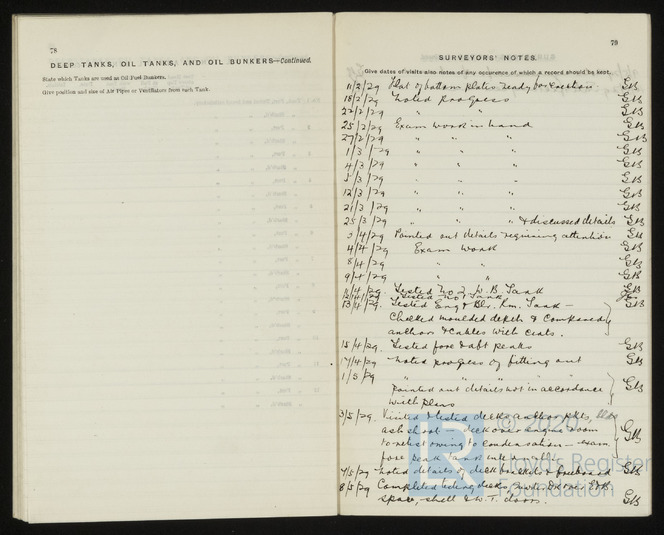 78
DEEP TANKS, OIL TANKS, AND OIL BUNKERS—Continued.
State which Tanks are used as Oil Fuel Bunkers.
Give position and size of Air Pipes or Ventilators from each Tank.
79
SURVEYORS' NOTES.
Give dates of visits also notes of any occurence of which a record should be kept.
11/2/29 Flat of bottom plates ready for erection GB
18/2/29 Noted progress GB
22/2/29 " " GB
25/2/29 Exam work in hand GB
27/2/29 " " " GB
1/3/29 " " " GB
4/3/29 " " " GB
5/3/29 " " " GB
12/3/29 " " " GB
21/3/29 " " " GB
25/3/29 " " " & discussed details GB
3/4/29 Pointed out details requiring attention GB
4/4/29 Exam work GB
8/4/29 " " GB
9/4/29 " " GB
11/4/29. Tested No 2 W.B. Tank GB
12/4/29 Tested No 1 Tank
13/4/29. Tested Eng & Blr. Rm. Tank — GB
Checked moulded depth & Compared
anchors & Cables with Certs.
15/4/29. Tested fore & aft peaks GB
17/4/29 Noted progress of fitting out GB
1/5/29 " " "
pointed out details not in accordance GB
with plans
3/5/29. Visited & tested decks anchor pkts,
ash shoot — deck over engine room
to retest owing to condensation — exam GB
fore peak tank
7/5/29 Noted details of deck brackets & freeboard GB
8/5/29 Completed testing decks,
space, shell & W.T. doors. GB
© 2020
LR
Lloyd's Register
Foundation